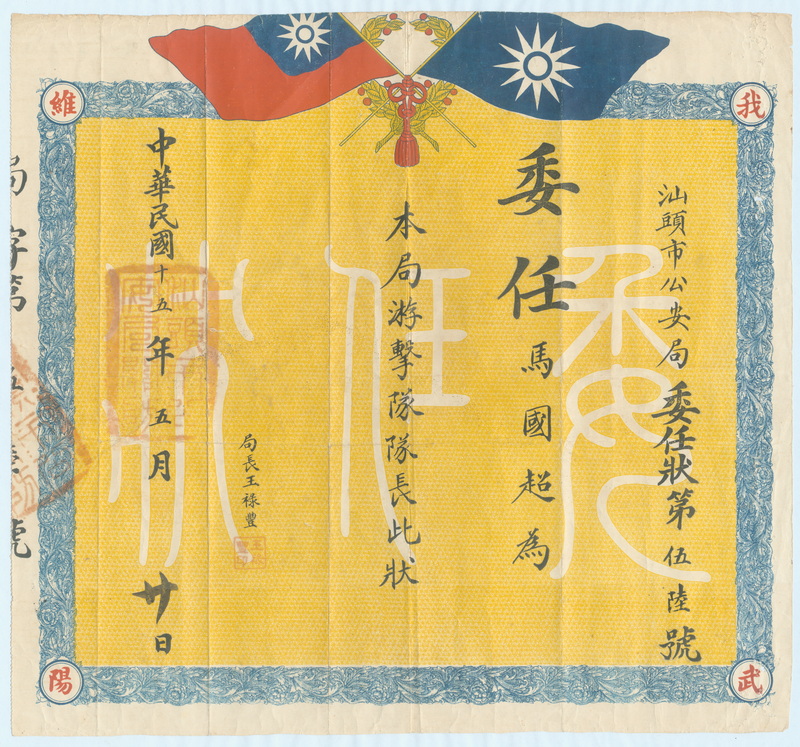 我武維陽
汕頭市公安局委任狀第伍陸號
委任馬國超為
本局游擊隊隊長此狀
局長王祿豐
中華民國十五年五月廿日
委任狀
局字第
號